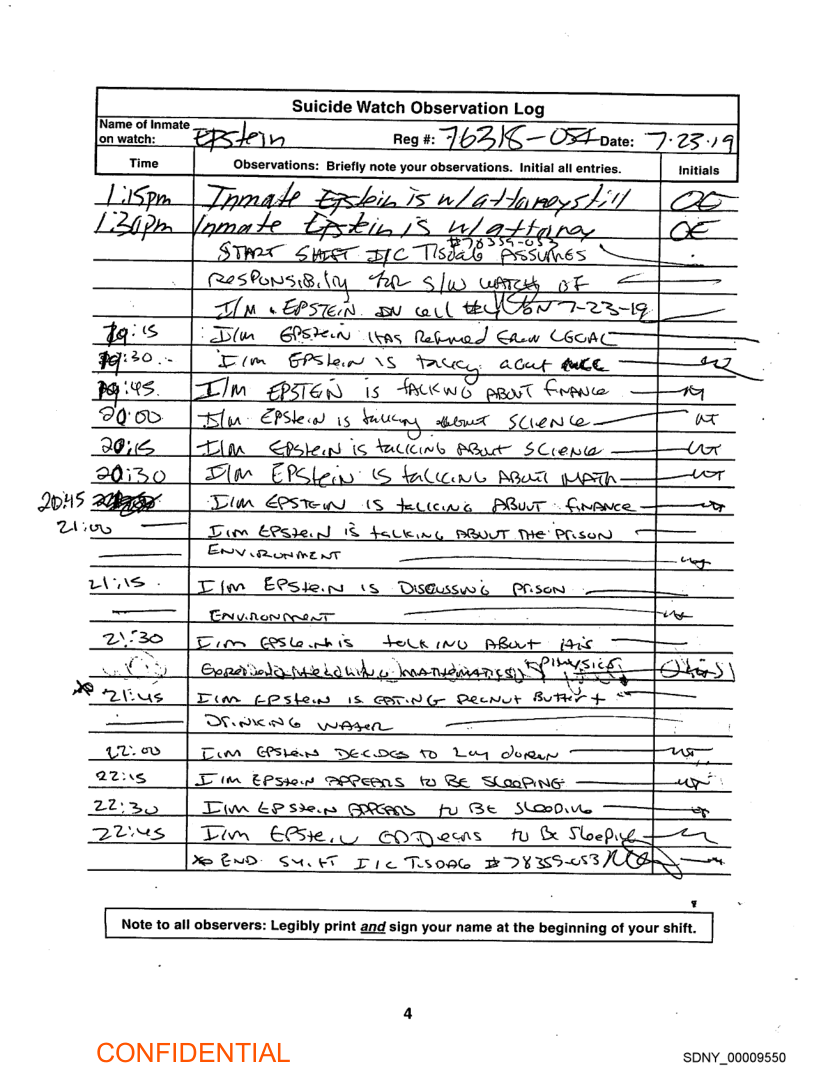 Suicide Watch Observation Log
Name of Inmate on watch: EPStein Reg #: 76318-054 Date: 7-23-19
Time Observations: Briefly note your observations. Initial all entries. Initials
1:15pm Inmate Epstein is w/ attorney still OE
1:30pm Inmate Epstein is w/ attorney OE
#78359-053
START SHIFT I/C Tisdag ASSUMES
RESPONSIBility for S/W WATCH OF
I/M EPSTEIN IN cell ON 7-23-19
19:15 I/M EPSTEIN HAS Returned From LEGAL
19:30 I/M EPSTEIN IS talking about
19:45 I/M EPSTEIN IS TALKING ABOUT FINANCE
20:00 I/M EPSTEIN IS talking about SCIENCE
20:15 I/M EPSTEIN IS talking ABOUT SCIENCE
20:30 I/M EPSTEIN IS talking ABOUT MATH
20:45 I/M EPSTEIN IS talking ABOUT FINANCE
21:00 I/M EPSTEIN IS talking ABOUT THE PRISON
ENVIRONMENT
21:15 I/M EPSTEIN IS DISCUSSING PRISON
ENVIRONMENT
21:30 I/M EPSTEIN is talking ABOUT His
MATHEMATICS PHYSICS
21:45 I/M EPSTEIN IS EATING PEANUT BUTTER +
DRINKING WATER
22:00 I/M EPSTEIN DECIDES to Lay down
22:15 I/M EPSTEIN APPEARS to BE SLEEPING
22:30 I/M EPSTEIN APPEARS to BE SLEEPING
22:45 I/M EPSTEIN APPears to Be Sleeping
END SHIFT I/C TISDAG #78359-053
Note to all observers: Legibly print and sign your name at the beginning of your shift.
4
CONFIDENTIAL
SDNY_00009550